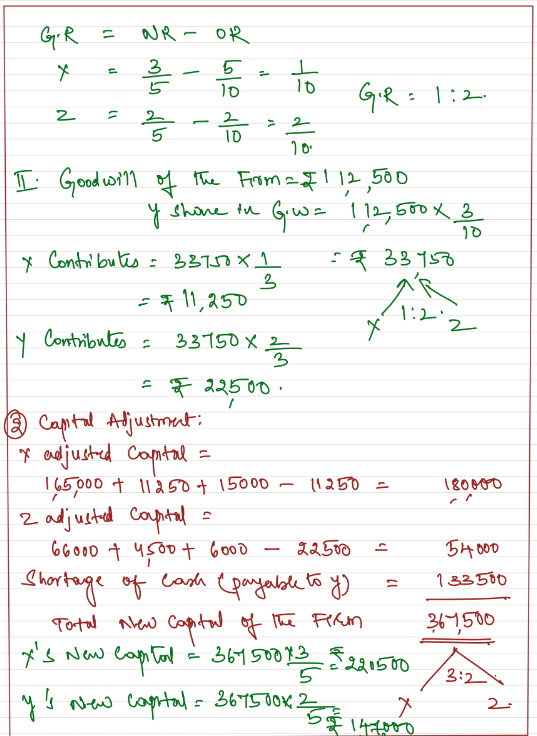 G.R = NR - OR
X = 3/5 - 5/10 = 1/10
G.R = 1:2.
Z = 2/5 - 2/10 = 2/10.
II. Goodwill of the Firm = ₹112,500
Y share in G.W = 112,500 × 3/10
X Contributes = 33750 × 1/3 = ₹ 33,750
= ₹ 11,250
X 1:2. Z
Y Contributes = 33750 × 2/3
= ₹ 22,500.
③ Capital Adjustment:
X adjusted Capital =
165,000 + 11250 + 15000 - 11250 = 180000
Z adjusted Capital =
66000 + 4,500 + 6000 - 22500 = 54000
Shortage of Cash (payable to Y) = 133500
Total New Capital of the Firm 367,500
X's New Capital = 367500 × 3/5 = ₹ 220500
3:2
Y's New Capital = 367500 × 2/5 = ₹ 147000
X Z.